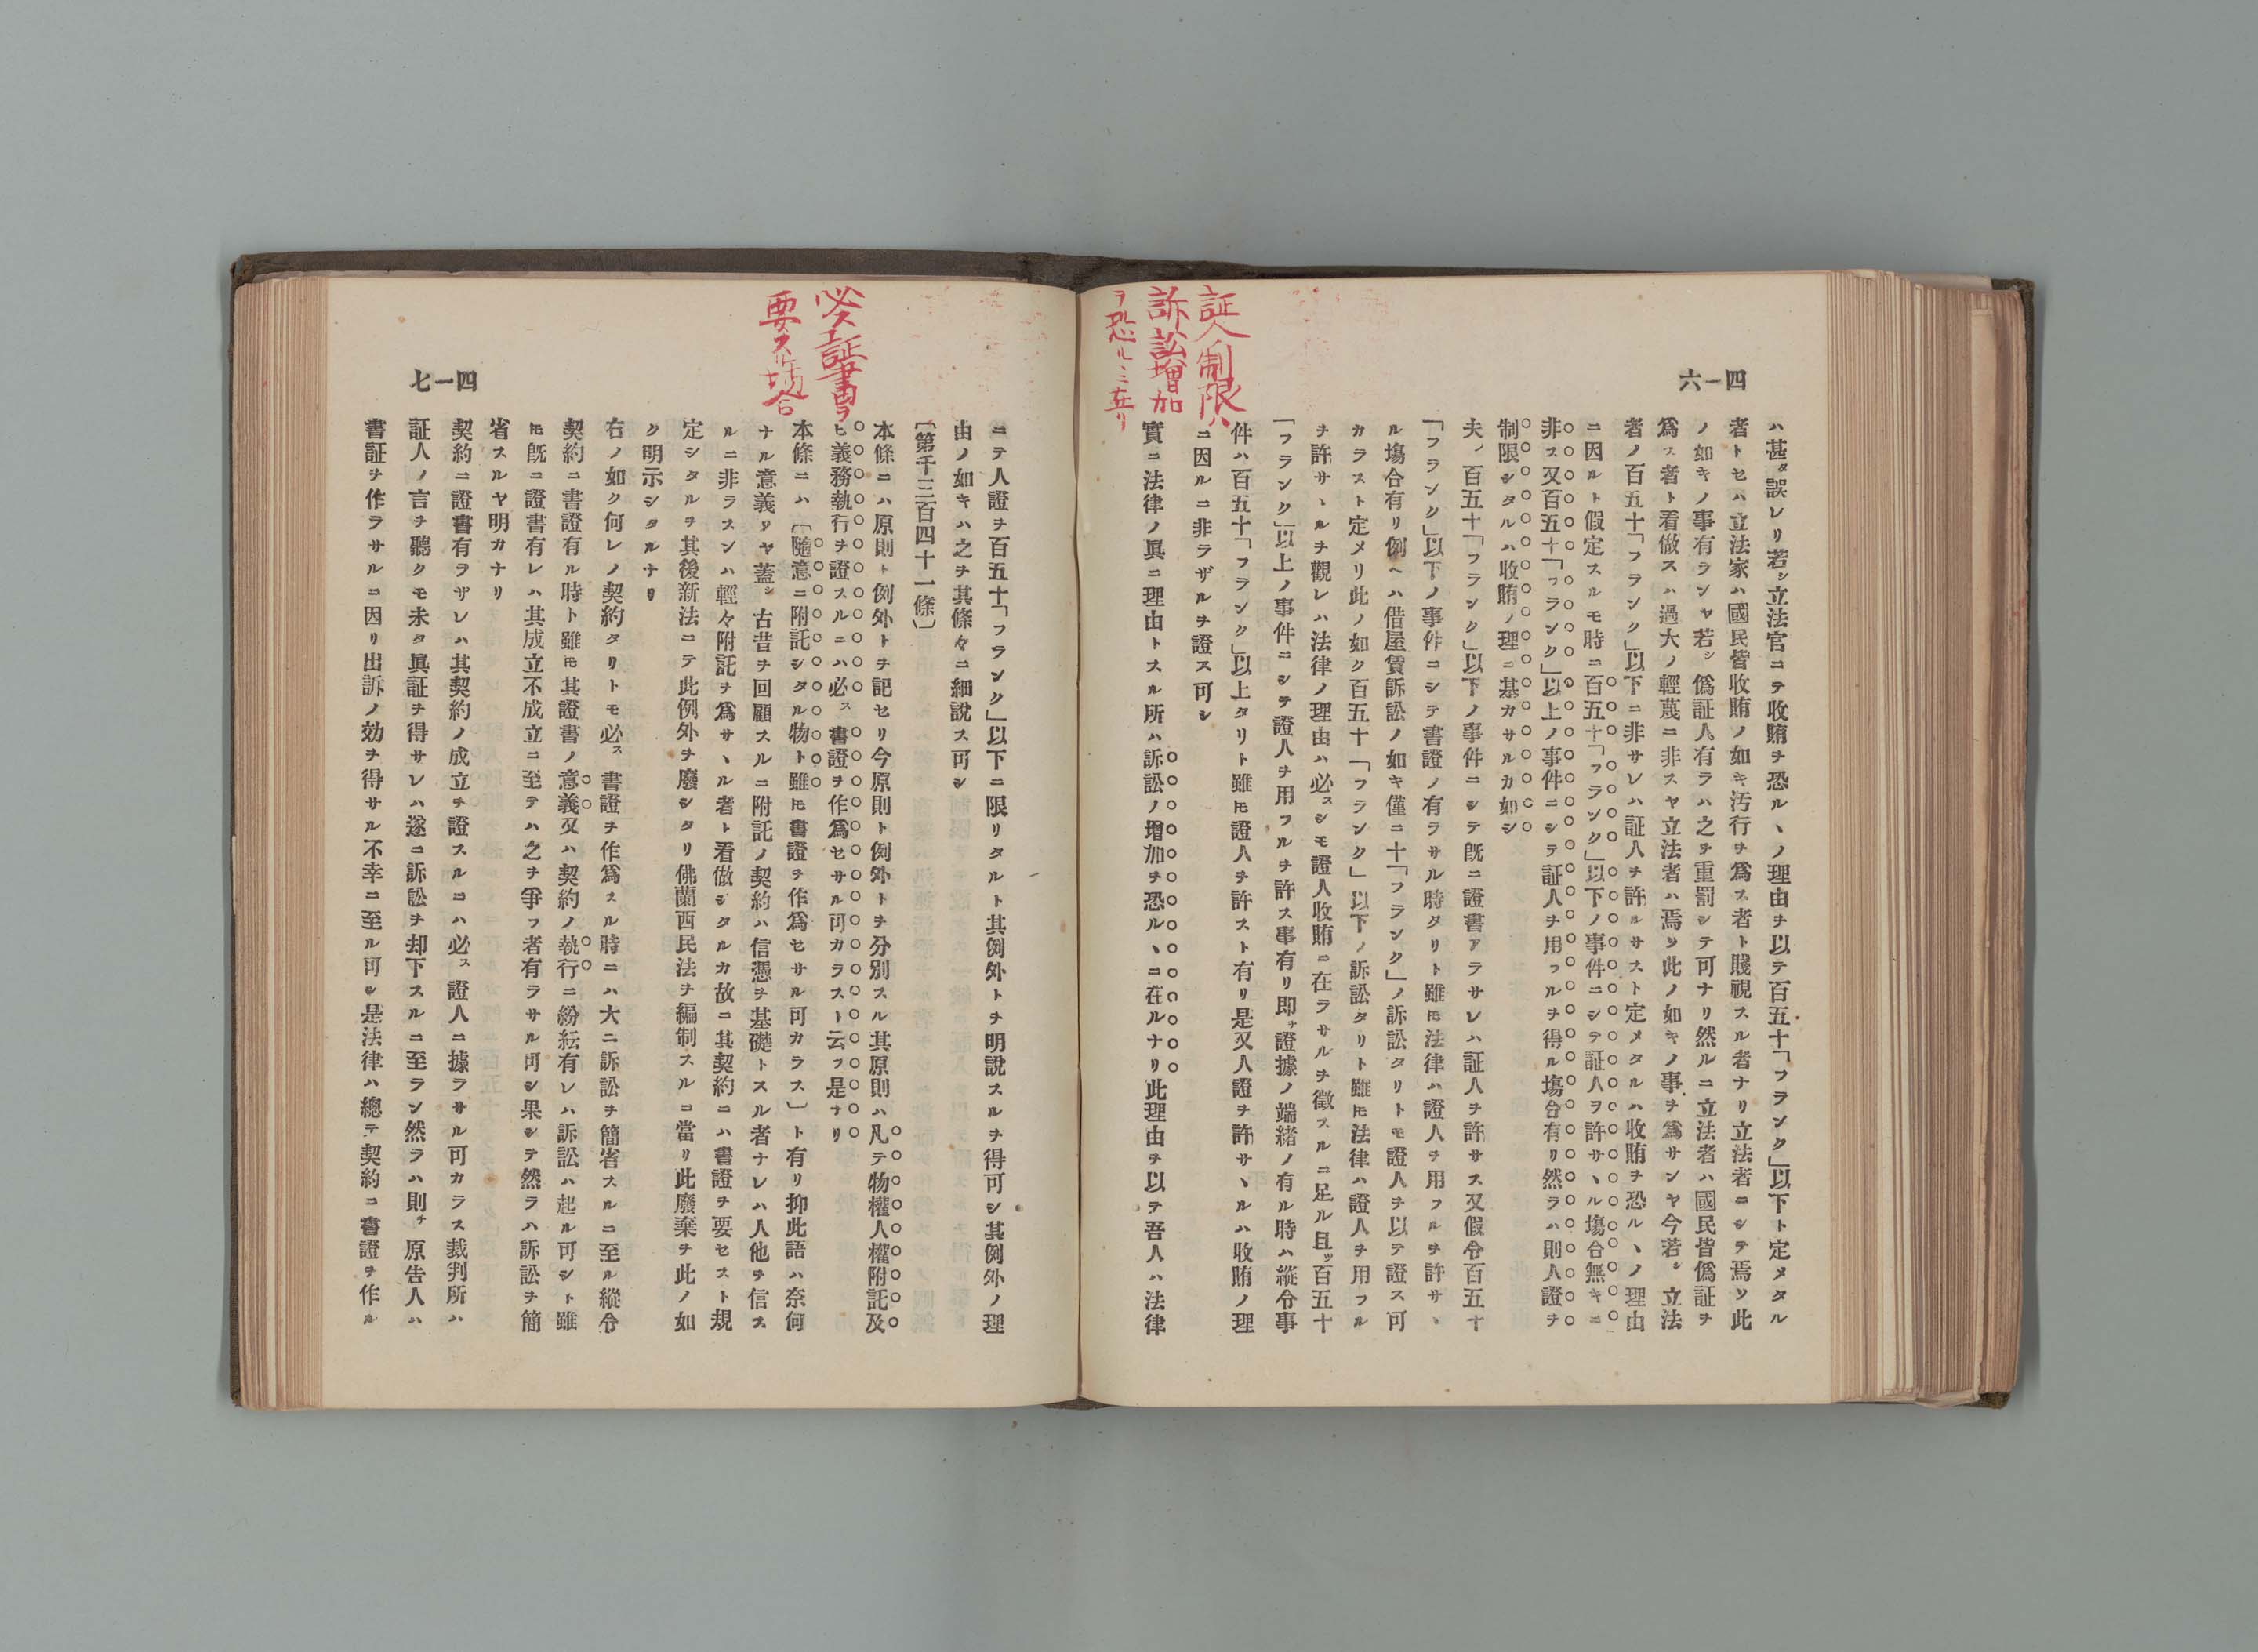 証人制限ハ
訴訟増加
ヲ恐ルヽニ在リ
六一四
ハ甚タ誤レリ若シ立法官ニテ收賄ヲ恐ルヽノ理由ヲ以テ百五十「フランク」以下ト定メタル
者トセハ立法家ハ國民皆收賄ノ如キ汚行ヲ爲ス者ト賤視スル者ナリ立法者ニシテ焉ソ此
ノ如キノ事有ランヤ若シ僞証人有ラハ之ヲ重罰シテ可ナリ然ルニ立法者ハ國民皆僞証ヲ
爲ス者ト看做スハ過大ノ輕蔑ニ非スヤ立法者ハ焉ソ此ノ如キノ事ヲ爲サンヤ今若シ立法
者ノ百五十「フランク」以下ニ非サレハ証人ヲ許ルサスト定メタルハ收賄ヲ恐ルヽノ理由
ニ因ルト假定スルモ時ニ百五十「フランク」以下ノ事件ニシテ証人ヲ許サヽル塲合無キニ
非ス又百五十「フランク」以上ノ事件ニシテ証人ヲ用フルヲ得ル塲合有リ然ラハ則人證ヲ
制限シタルハ收賄ノ理ニ基カサルカ如シ
夫ノ百五十「フランク」以下ノ事件ニシテ既ニ證書アラサレハ証人ヲ許サス又假令百五十
「フランク」以下ノ事件ニシテ書證ノ有ラサル時タリト雖モ法律ハ證人ヲ用フルヲ許サヽ
ル塲合有リ例ヘハ借屋賃訴訟ノ如キ僅ニ十「フランク」ノ訴訟タリトモ證人ヲ以テ證ス可
カラスト定メリ此ノ如ク百五十「フランク」以下ノ訴訟タリト雖モ法律ハ證人ヲ用フル
ヲ許サヽルヲ觀レハ法律ノ理由ハ必スシモ證人收賄ニ在ラサルヲ徴スルニ足ル且ツ百五十
「フランク」以上ノ事件ニシテ證人ヲ用フルヲ許ス事有リ即チ證據ノ端緒ノ有ル時ハ縱令事
件ハ百五十「フランク」以上タリト雖モ證人ヲ許スト有リ是又人證ヲ許サヽルハ收賄ノ理
ニ因ルニ非ラザルヲ證ス可シ
實ニ法律ノ眞ニ理由トスル所ハ訴訟ノ增加ヲ恐ルヽニ在ルナリ此理由ヲ以テ吾人ハ法律
必ス証書ヲ
要スル塲合
七一四
ニテ人證ヲ百五十「フランク」以下ニ限リタルト其例外トヲ明説スルヲ得可シ其例外ノ理
由ノ如キハ之ヲ其條々ニ細説ス可シ
〔第千三百四十一條〕
本條ニハ原則ト例外トヲ記セリ今原則ト例外トヲ分別スル其原則ハ凡テ物權人權附託及
ヒ義務執行ヲ證スルニハ必ス書證ヲ作爲セサル可カラスト云フ是ナリ
本條ニハ〔隨意ニ附託シタル物ト雖モ書證ヲ作爲セサル可カラス〕ト有リ抑此語ハ奈何
ナル意義リヤ蓋シ古昔ヲ回顧スルニ附託ノ契約ハ信憑ヲ基礎トスル者ナレハ人他ヲ信ス
ルニ非ラスンハ輕々附託ヲ爲サヽル者ト看做シタルカ故ニ其契約ニハ書證ヲ要セスト規
定シタルヲ其後新法ニテ此例外ヲ廢シタリ佛蘭西民法ヲ編制スルニ當リ此廢棄ヲ此ノ如
ク明示シタルナリ
右ノ如ク何レノ契約タリトモ必ス書證ヲ作爲スル時ニハ大ニ訴訟ヲ簡省スルニ至ル縱令
契約ニ書證有ル時ト雖モ其證書ノ意義又ハ契約ノ執行ニ紛紜有レハ訴訟ハ起ル可シト雖
モ既ニ證書有レハ其成立不成立ニ至テハ之ヲ爭フ者有ラサル可シ果シテ然ラハ訴訟ヲ簡
省スルヤ明カナリ
契約ニ證書有ラザレハ其契約ノ成立ヲ證スルコハ必ス證人ニ據ラサル可カラス裁判所ハ
証人ノ言ヲ聽クモ未タ眞証ヲ得サレハ遂ニ訴訟ヲ却下スルニ至ラン然ラハ則チ原告人ハ
書証ヲ作ラサルニ因リ出訴ノ効ヲ得サル不幸ニ至ル可シ是法律ハ總テ契約ニ書證ヲ作ル